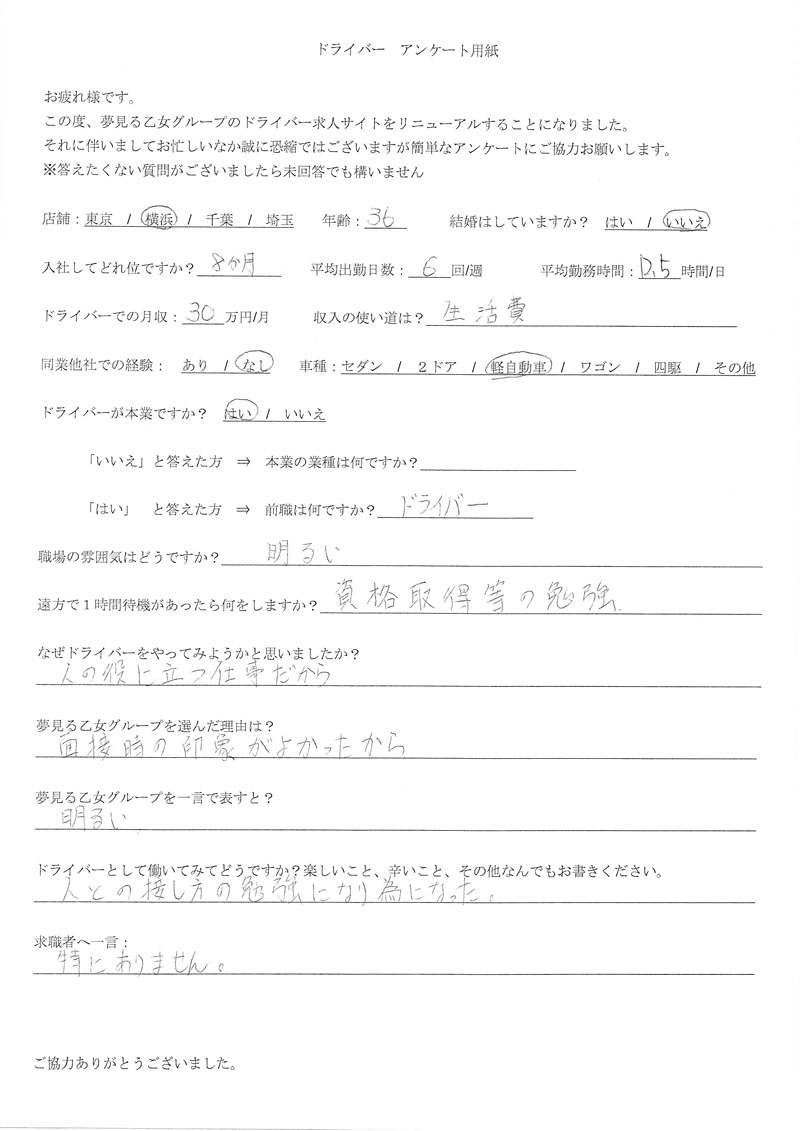 ドライバー　アンケート用紙
お疲れ様です。
この度、夢見る乙女グループのドライバー求人サイトをリニューアルすることになりました。
それに伴いましてお忙しいなか誠に恐縮ではございますが簡単なアンケートにご協力お願いします。
※答えたくない質問がございましたら未回答でも構いません
店舗：東京　/　横浜　/　千葉　/　埼玉　　年齢：36　　結婚はしていますか？　はい　/　いいえ
入社してどれ位ですか？ 8か月　　平均出勤日数： 6 回/週　　平均勤務時間：12.5 時間/日
ドライバーでの月収： 30 万円/月　　収入の使い道は？ 生活費
同業他社での経験：　あり　/　なし　　車種：セダン　/　２ドア　/　軽自動車　/　ワゴン　/　四駆　/　その他
ドライバーが本業ですか？　はい　/　いいえ
「いいえ」と答えた方　⇒　本業の業種は何ですか？
「はい」　と答えた方　⇒　前職は何ですか？ ドライバー
職場の雰囲気はどうですか？ 明るい
遠方で１時間待機があったら何をしますか？ 資格取得等の勉強.
なぜドライバーをやってみようかと思いましたか？
人の役に立つ仕事だから
夢見る乙女グループを選んだ理由は？
面接時の印象がよかったから
夢見る乙女グループを一言で表すと？
明るい
ドライバーとして働いてみてどうですか？楽しいこと、辛いこと、その他なんでもお書きください。
人との接し方の勉強になり為になった。
求職者へ一言：
特にありません。
ご協力ありがとうございました。